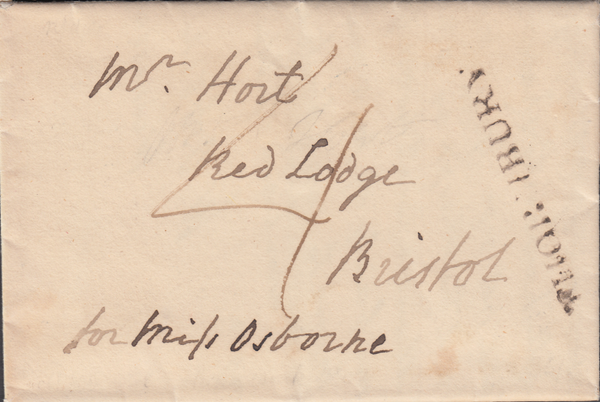 Mr. Hort
Red Lodge
Bristol
for Miſs Osborne
4